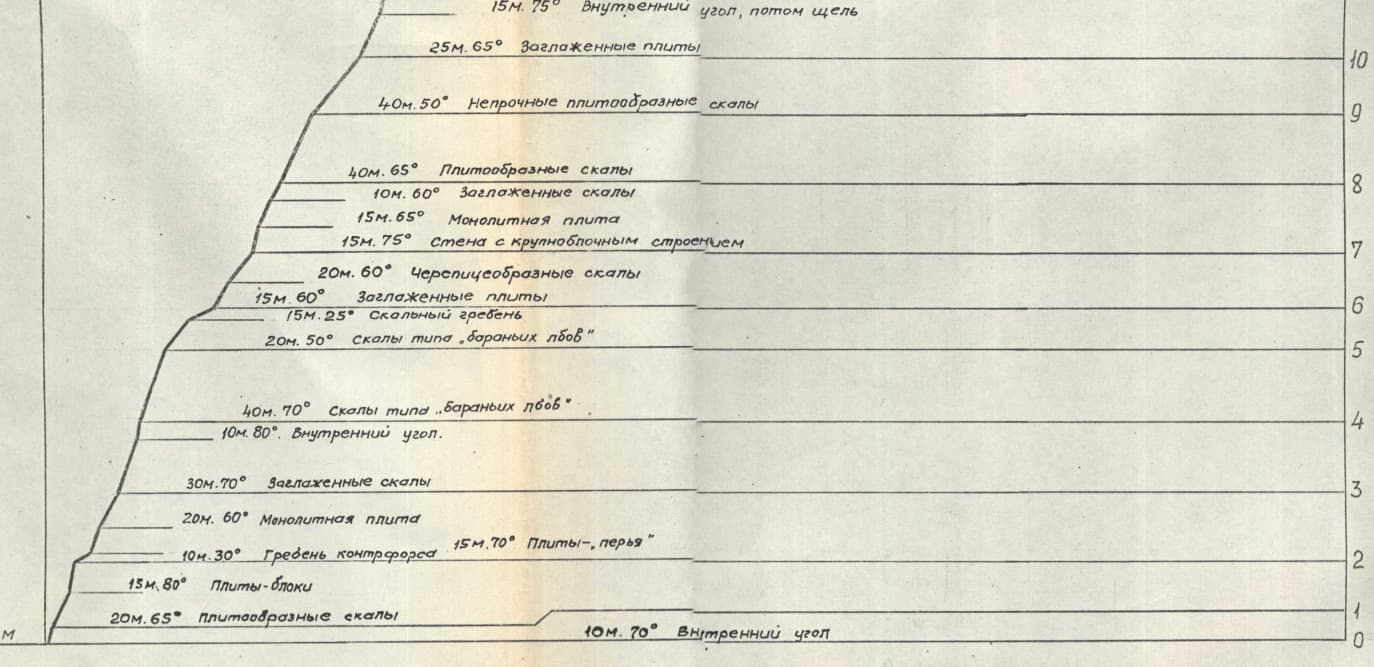 15м. 75° Внутренний угол, потом щель
25м. 65° Заглаженные плиты
10
40м. 50° Непрочные плитообразные скалы
9
40м. 65° Плитообразные скалы
8
10м. 60° Заглаженные скалы
15м. 65° Монолитная плита
15м. 75° Стена с крупноблочным строением
7
20м. 60° Черепицеобразные скалы
15м. 60° Заглаженные плиты
6
15м. 25° Скальный гребень
20м. 50° Скалы типа „бараньих лбов"
5
40м. 70° Скалы типа „бараньих лбов"
4
10м. 80°. Внутренний угол.
30м. 70° Заглаженные скалы
3
20м. 60° Монолитная плита
15м. 70° Плиты-„перья"
10м. 30° Гребень контрфорса
2
15м. 80° Плиты-блоки
20м. 65° плитообразные скалы
1
м
10м. 70° Внутренний угол
0